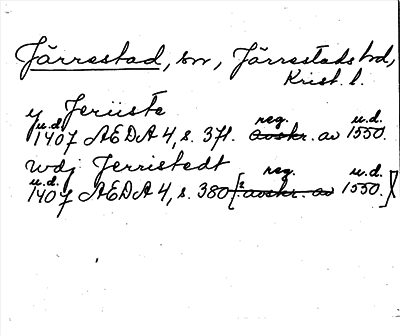 Järrestad, sn, Järrestads hd,
Krist. l.
y Jeriiste
u.d. reg. u.d.
1407 ÆDA 4, s. 371. avskr. av 1550.
wdj Jerristedt
u.d. reg. u.d.
1407 ÆDA 4, s. 380 [: avskr. av 1550.]